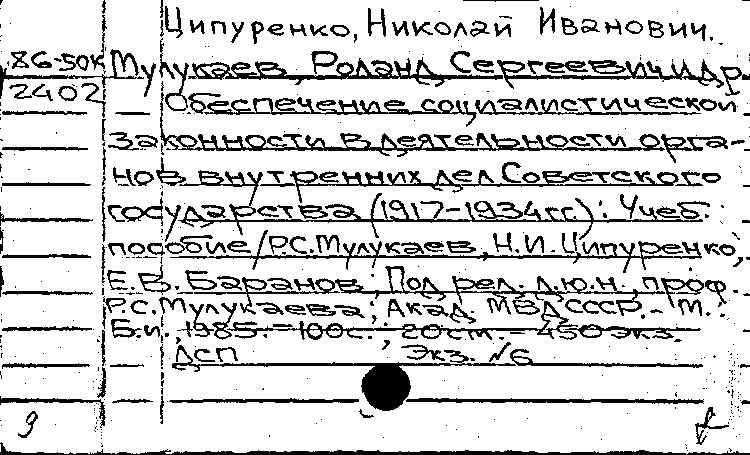 Ципуренко, Николай Иванович.
86-50к Мулукаев, Роланд Сергеевич и др
2402 Обеспечение социалистической
законности в деятельности орга-
нов внутренних дел Советского
государства (1917-1934 гг.): Учеб.
пособие/Р.С.Мулукаев, Н.И.Ципуренко,
Е.В.Баранов; Под ред. д.ю.н., проф.
Р.С.Мулукаева; Акад. МВД СССР.- М.:
Б.и., 1985.-100с.; 20см.- 450 экз.
ДСП Экз. №6
9